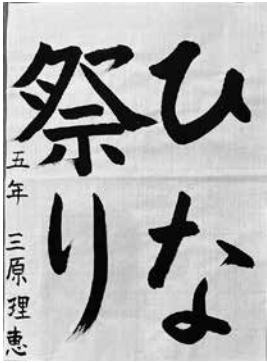 ひな
祭り
五年 三原理恵